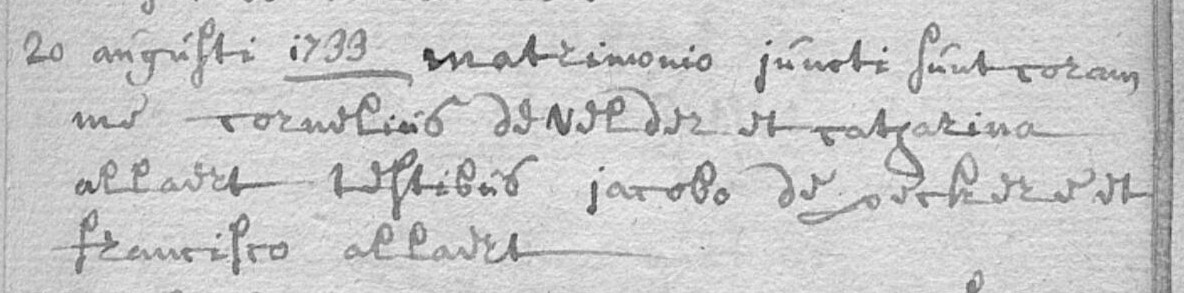 20 augusti 1733 matrimonio juncti sunt coram
me cornelius de velder et catharina
allaert testibus jacobo de et
francisco allaert